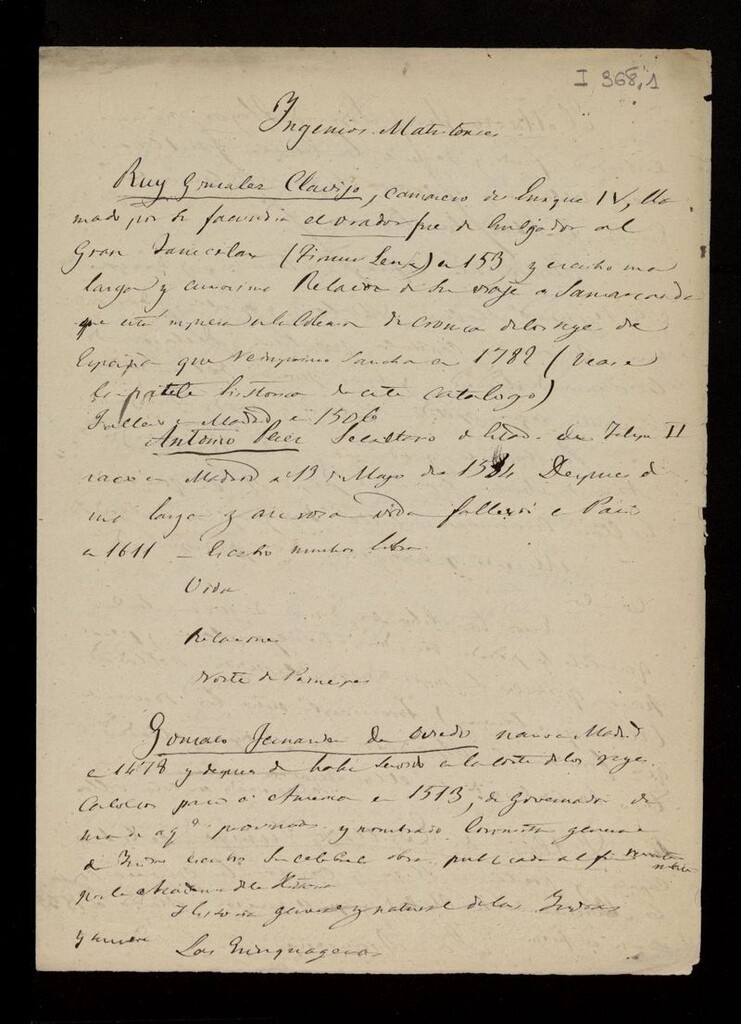 I 368,1
Ingenios Matritenses
Ruy Gonzalez Clavijo, camarero de Enrique IV, lla
mado por su facundia el orador fue de Embajador al
Gran Tamerlan (Timur Lenk) en 153 y escribio una
larga y curiosima Relacion de su viaje a Samarcanda
que está impresa en la Coleccion de cronicas de los reyes de
España que reimprimio Sancha en 1782 (Vease
la parte historica de este catalogo)
Fallecio en Madrid en 1506
Antonio Perez Secretario de Estado de Felipe II
nacio en Madrid a 13 de Mayo de 1534 Despues de
una larga y vida fallecio en Paris
en 1611 – Escribio muchos libros
Vida
Relaciones
Norte de Principes
Gonzalo Fernandez de Oviedo nacio en Madrid
en 1478 y despues de haber servido en la corte de los reyes
Catolicos paso a America en 1513, de Governador de
una de aqs provincias y nombrado Coronista general
de Indias escribio su celebre obra publicada al fin recientemente
por la Academia de la Historia
Historia general y natural de las Indias
y tambien Las Quinquagenas